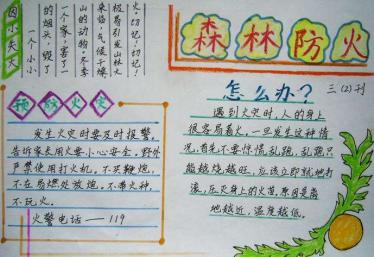 森林防火
三(2)刊
因小失大
一个小小
的烟头,毁了
一个家;害了一
山的动物。冬季
来临,气候干燥
极易引发山林大
火,切记!切记!
预防火灾
发生火灾时要及时报警,
告诉家长用火要小心安全。野外
严禁使用打火机。不买鞭炮,
不在易燃处放炮。不带火种,
不玩火。
火警电话——119
怎么办?
遇到火灾时,人的身上
很容易着火,一旦发生这种情
况,首先不要惊慌乱跑,乱跑只
能越烧越旺,应该立即就地打
滚,压灭身上的火苗,原因是离
地越近,温度越低。